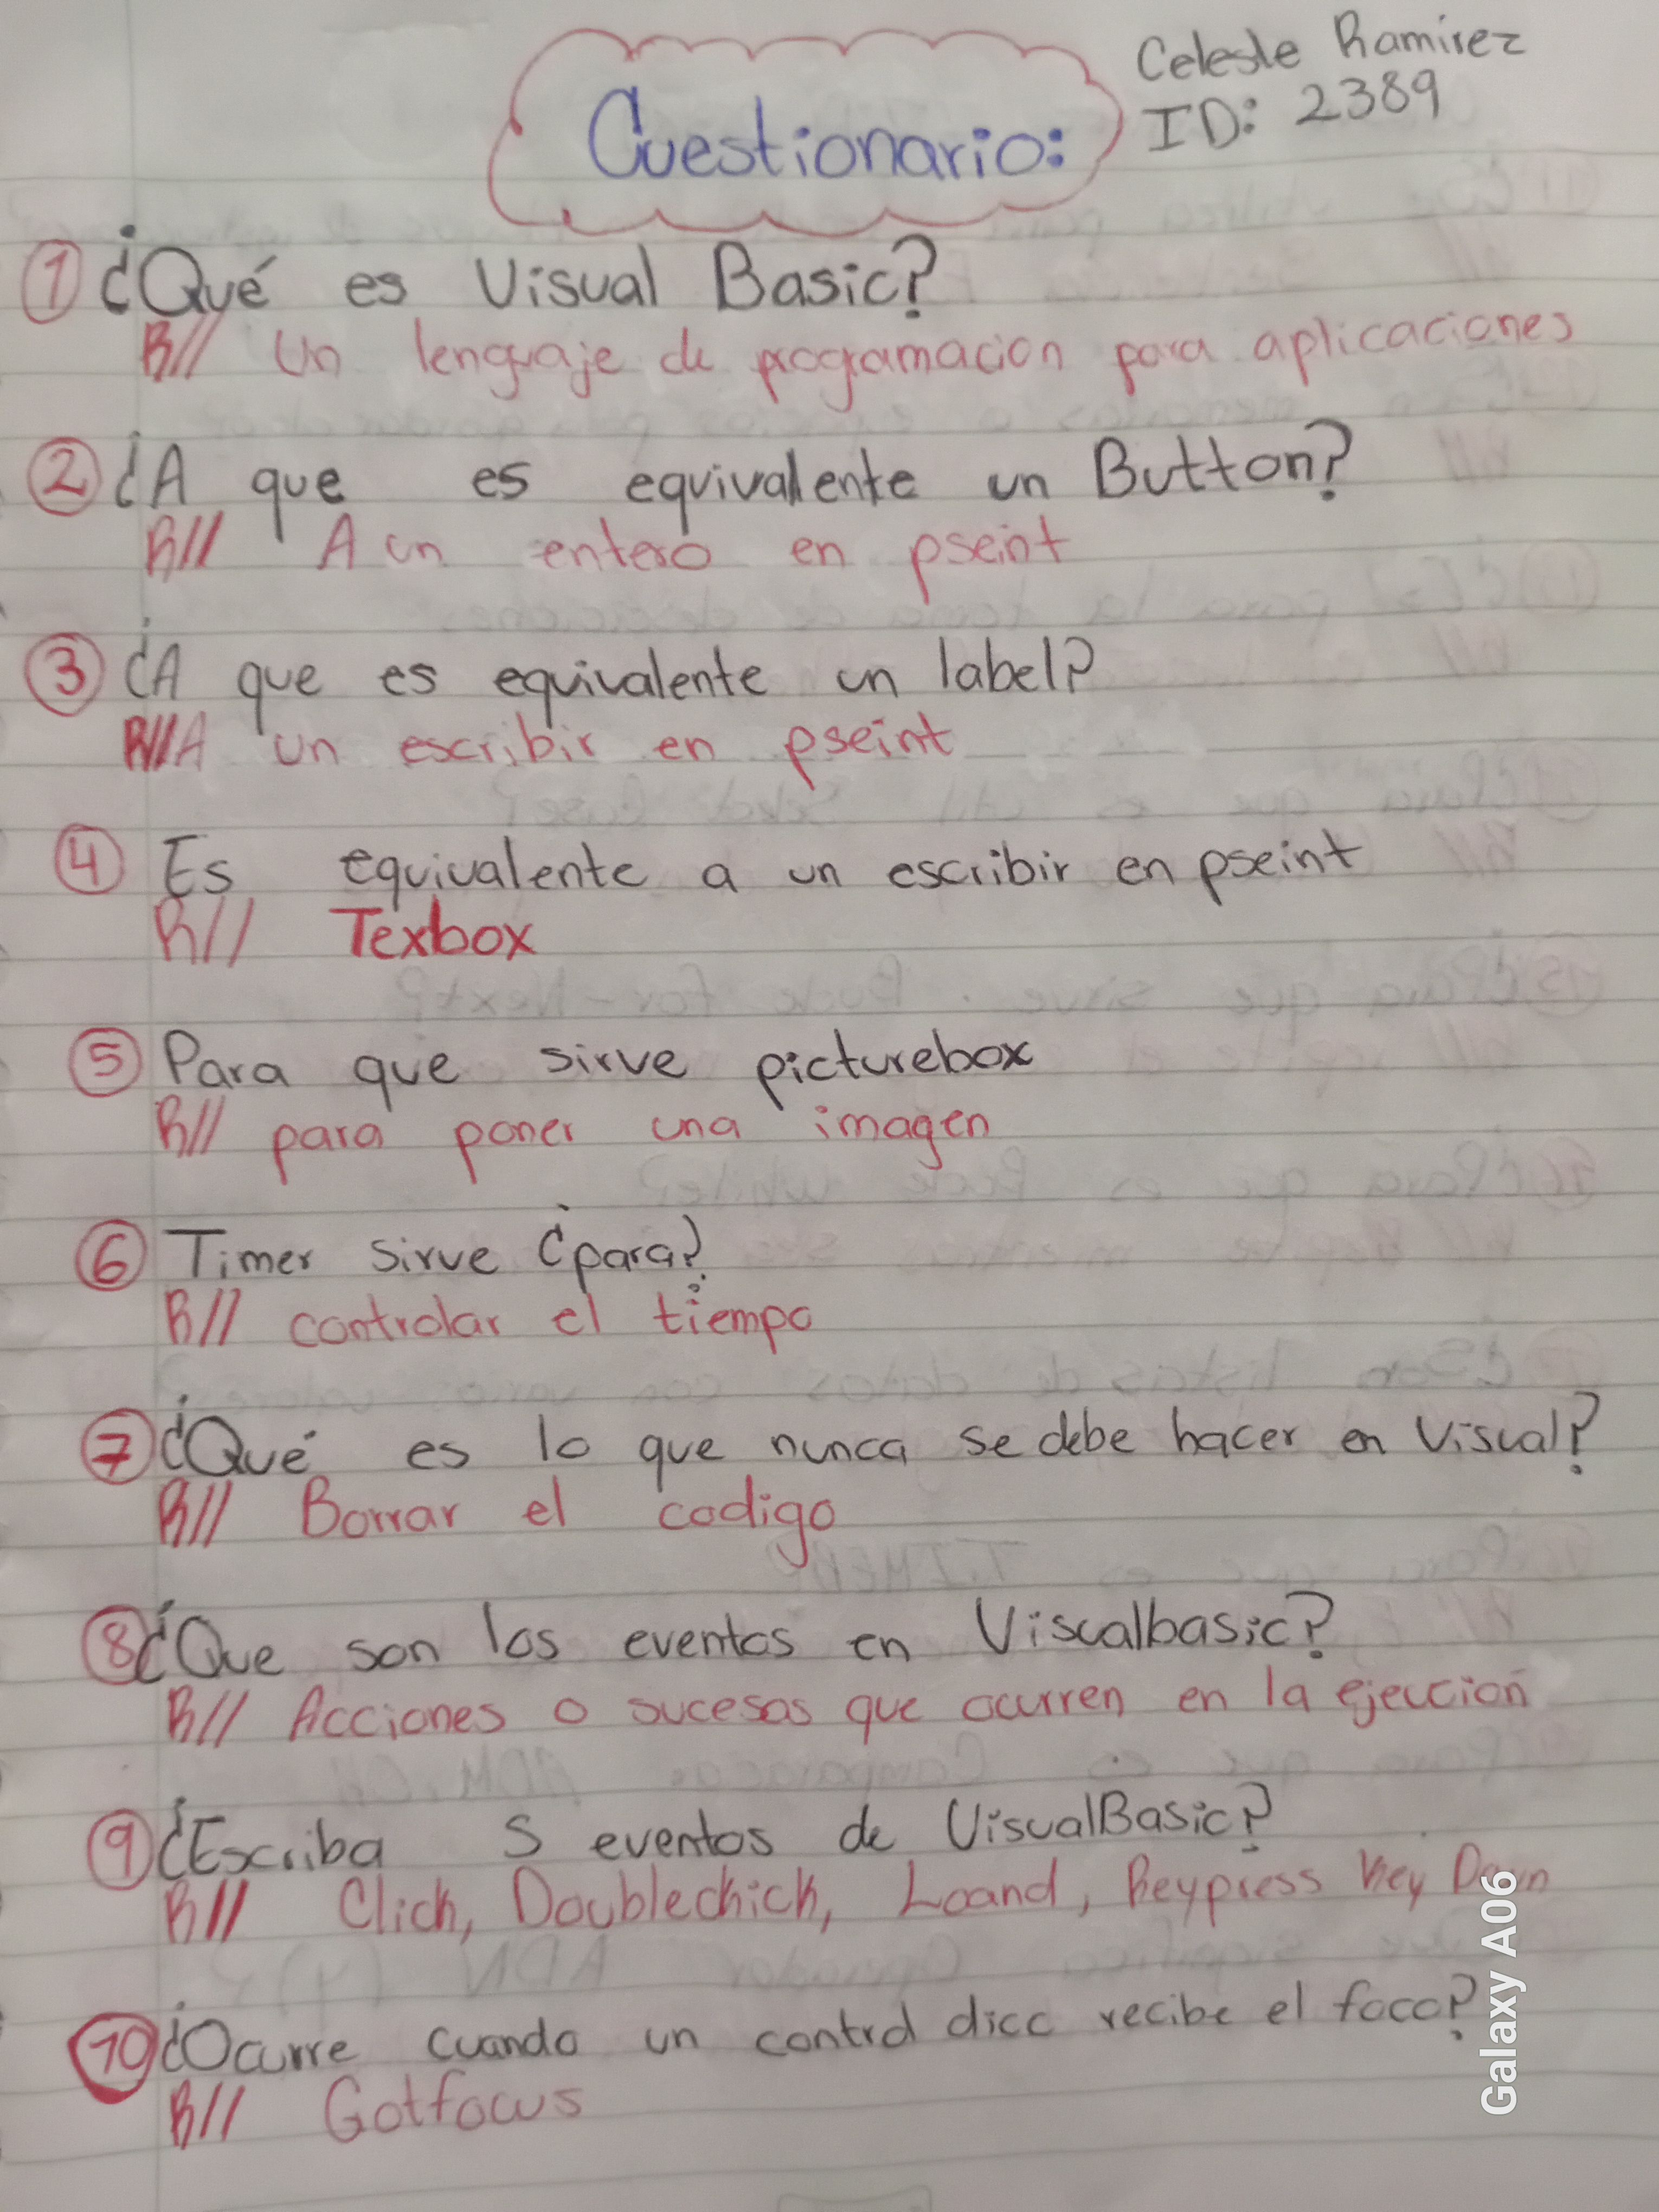 Celeste Ramirez
ID: 2389
Cuestionario:
1 ¿Qué es Visual Basic?
R// Un lenguaje de programacion para aplicaciones
2 ¿A que es equivalente un Button?
R// A un entero en pseint
3 ¿A que es equivalente un label?
R// A un escribir en pseint
4 Es equivalente a un escribir en pseint
R// Texbox
5 Para que sirve picturebox
R// para poner una imagen
6 Timer sirve ¿para?
R// controlar el tiempo
7 ¿Qué es lo que nunca se debe hacer en Viscual?
R// Borrar el codigo
8 ¿Que son los eventos en Viscualbasic?
R// Acciones o sucesos que ocurren en la ejeccion
9 ¿Escriba 5 eventos de ViscualBasic?
R// Click, Doublechick, Loand, Keypress Key Down
10 ¿Ocurre cuando un control dicc recibe el foco?
R// Gotfocus
Galaxy A06